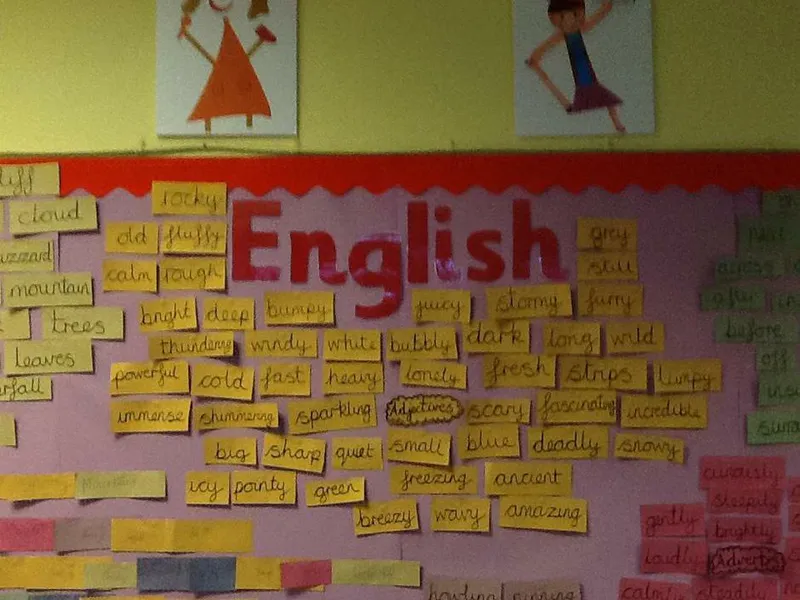 rocky
cloud
English
old fluffy
grey
calm rough
still
mountain
bright deep bumpy juicy stormy furry
trees
thundering windy white bubbly dark long wild
before
leaves
off
powerful cold fast heavy lonely fresh strips lumpy
immense shimmering sparkling Adjectives scary fascinating incredible
big sharp quiet small blue deadly snowy
icy pointy green freezing ancient
curiously
sleepily
breezy wavy amazing
gently brightly
loudly
calmly steadily
howling